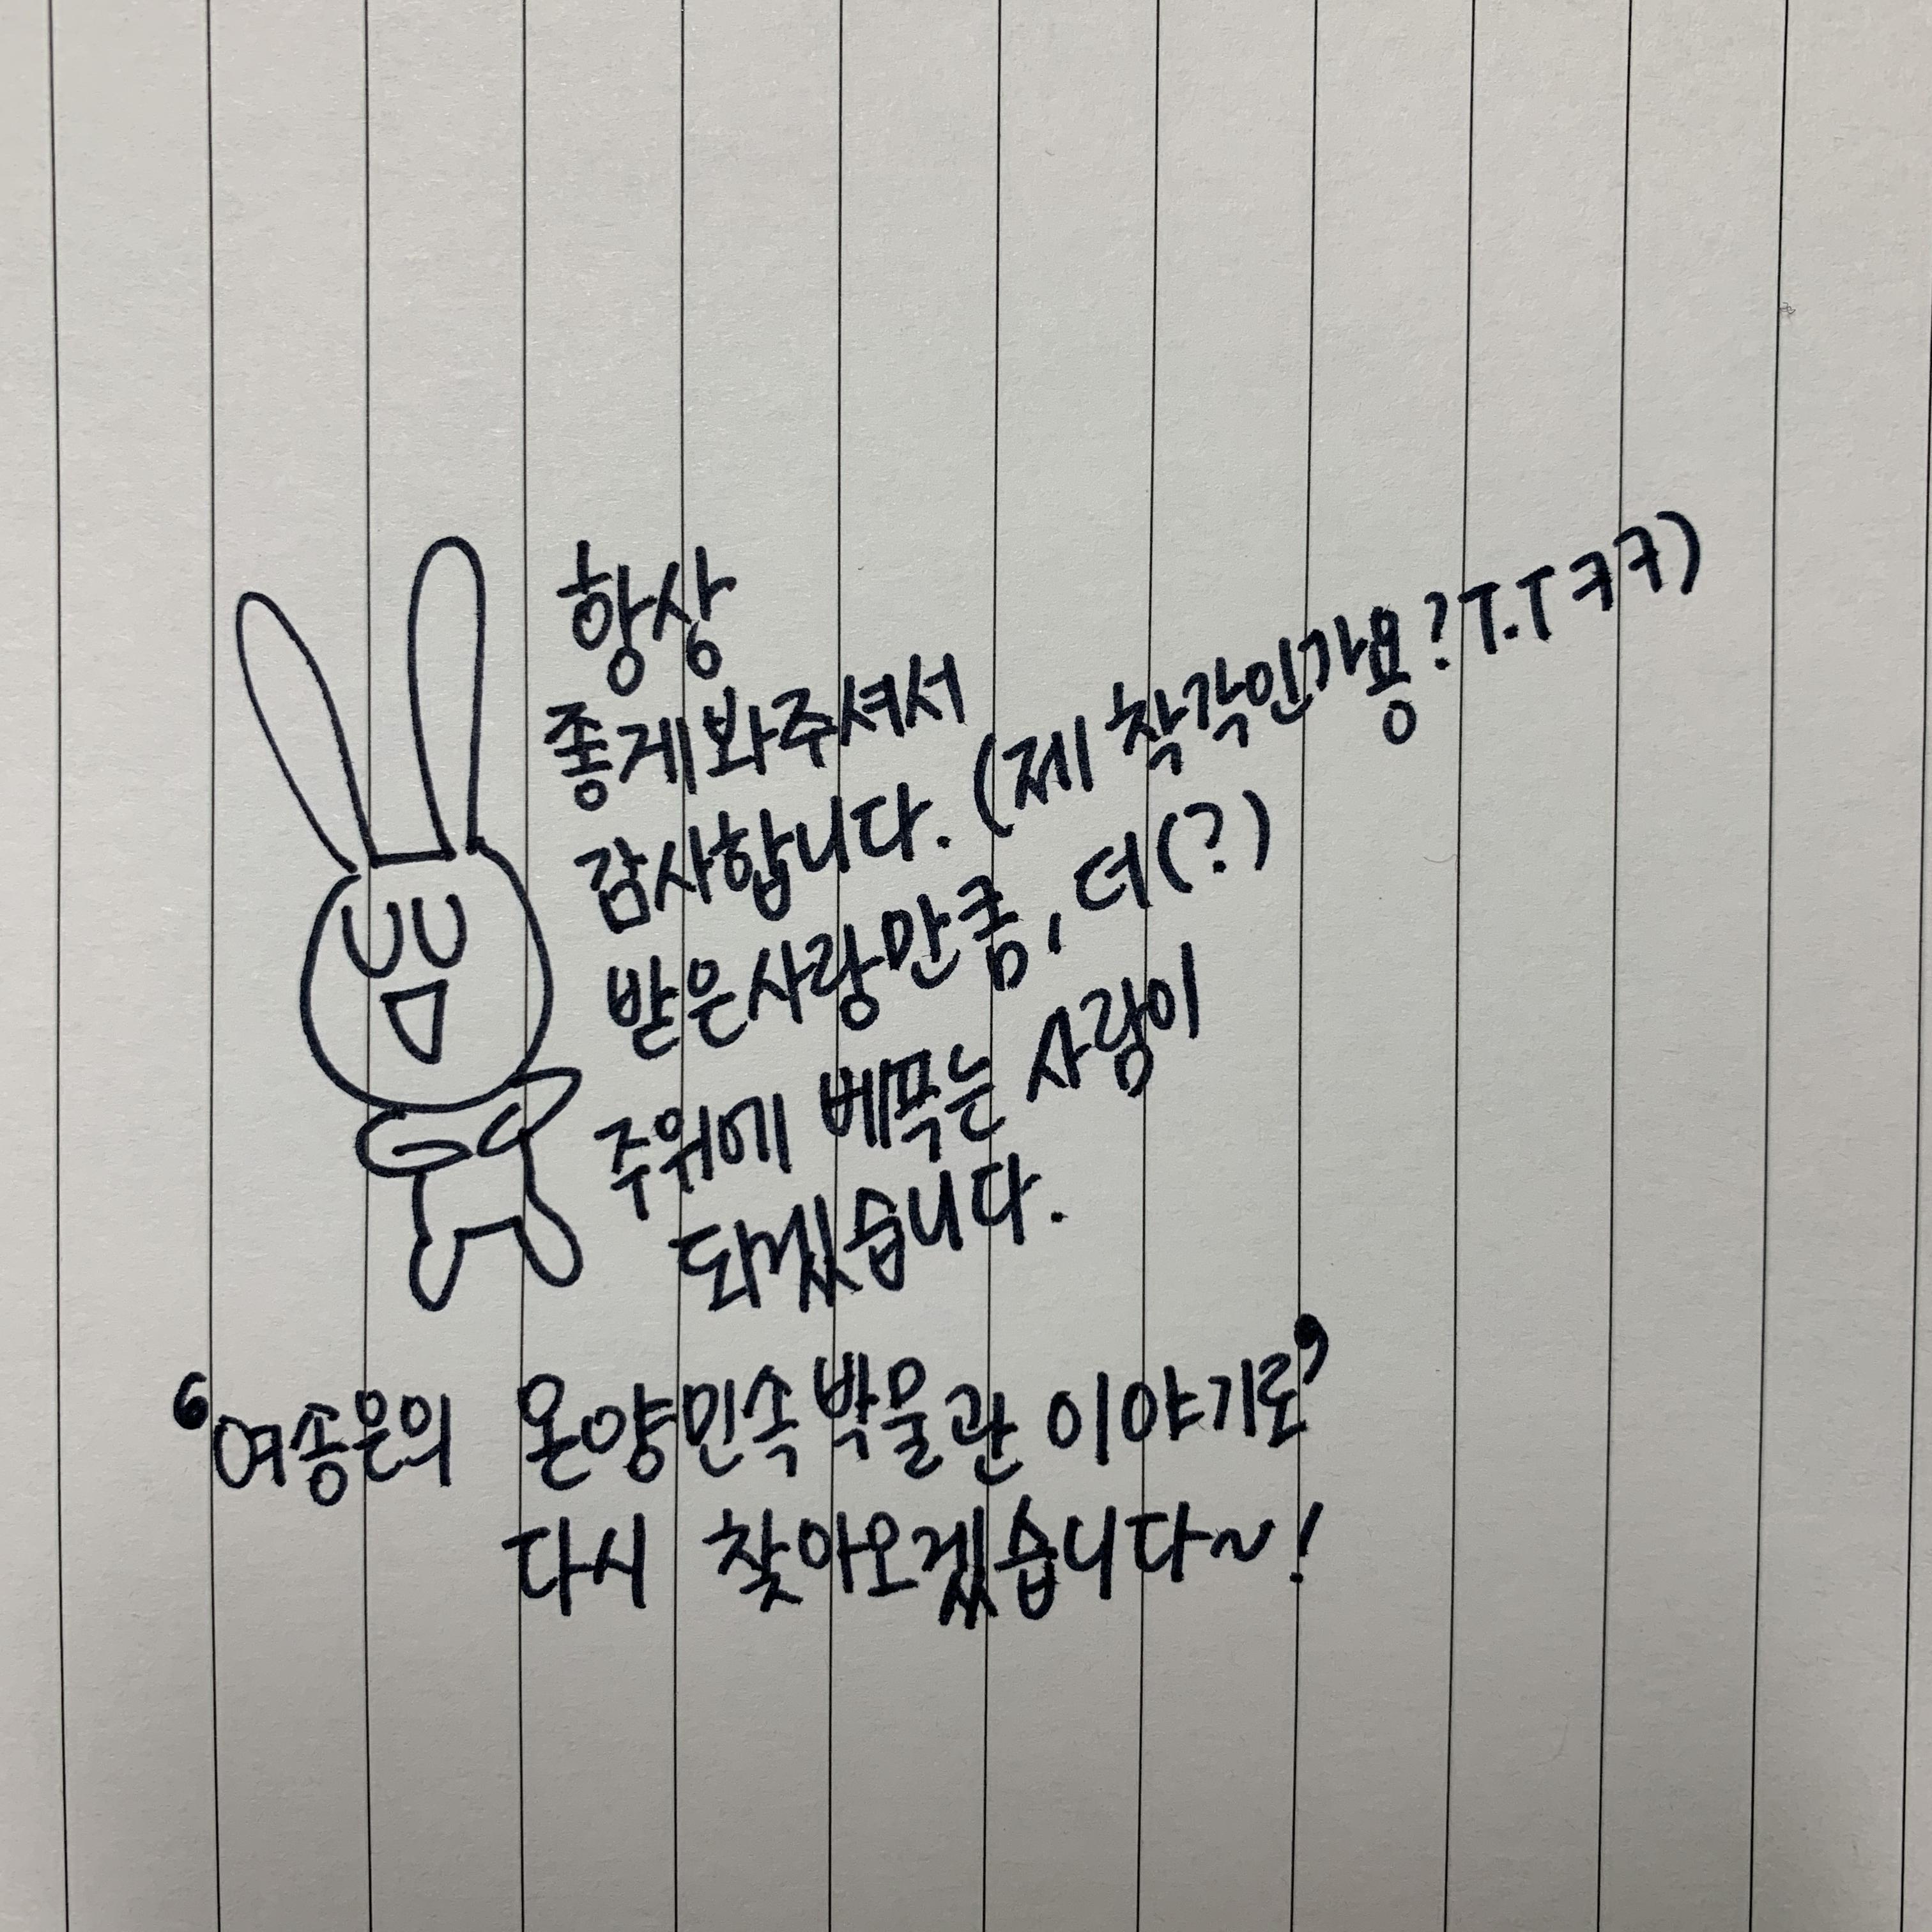 항상
좋게봐주셔서
감사합니다. (제 착각인가용? T.T ㅋㅋ)
받은사랑만큼, 더(?)
주위에 베푸는 사람이
되겠습니다.
‘여송은의 온양민속박물관 이야기로’
다시 찾아오겠습니다~!